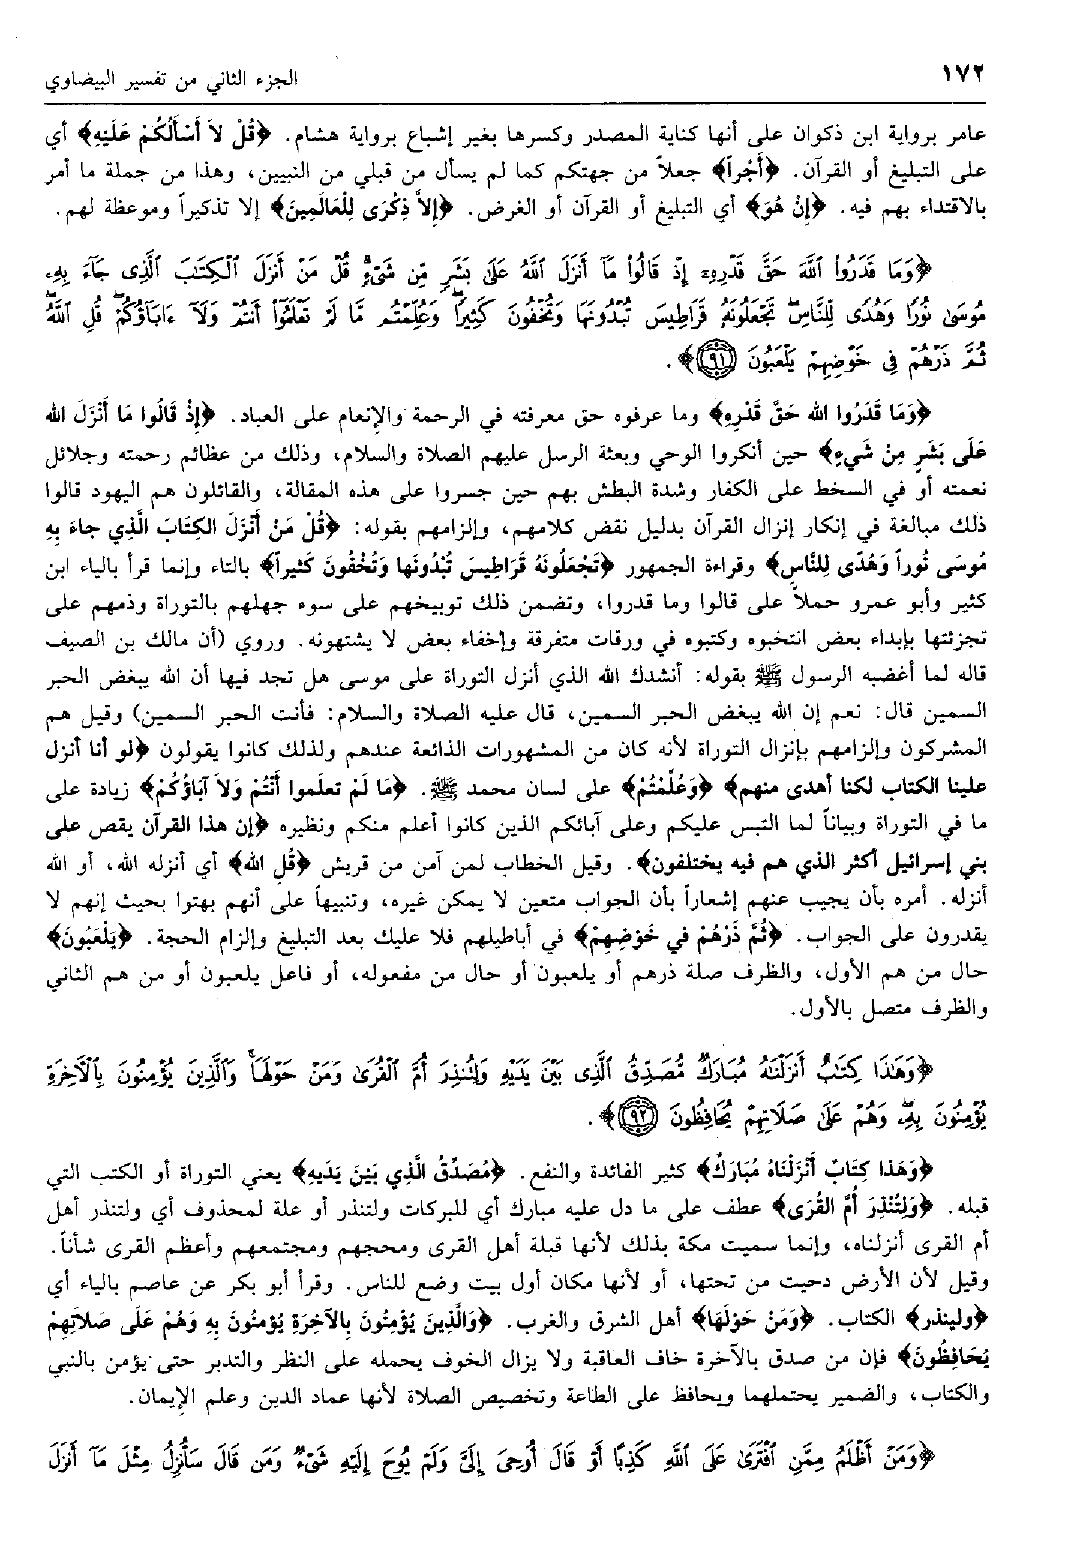 ١٧٢
الجزء الثاني من تفسير البيضاوي
عامر برواية ابن ذكوان على أنها كناية المصدر وكسرها بغير إشباع برواية هشام. ﴿قُلْ لاَ أَسْأَلُكُمْ عَلَيْهِ﴾ أي
على التبليغ أو القرآن. ﴿أَجْراً﴾ جعلاً من جهتكم كما لم يسأل من قبلي من النبيين، وهذا من جملة ما أمر
بالاقتداء بهم فيه. ﴿إِنْ هُوَ﴾ أي التبليغ أو القرآن أو الغرض. ﴿إِلاَّ ذِكْرَى لِلْعَالَمِينَ﴾ إلا تذكيراً وموعظة لهم.
﴿وَمَا قَدَرُوا۟ ٱللَّهَ حَقَّ قَدْرِهِۦٓ إِذْ قَالُوا۟ مَآ أَنزَلَ ٱللَّهُ عَلَىٰ بَشَرٍ مِّن شَىْءٍ قُلْ مَنْ أَنزَلَ ٱلْكِتَٰبَ ٱلَّذِى جَآءَ بِهِۦ
مُوسَىٰ نُورًا وَهُدًى لِّلنَّاسِ تَجْعَلُونَهُۥ قَرَاطِيسَ تُبْدُونَهَا وَتُخْفُونَ كَثِيرًا وَعُلِّمْتُم مَّا لَمْ تَعْلَمُوٓا۟ أَنتُمْ وَلَآ ءَابَآؤُكُمْ قُلِ ٱللَّهُ
ثُمَّ ذَرْهُمْ فِى خَوْضِهِمْ يَلْعَبُونَ ﴿٩١﴾﴾.
﴿وَمَا قَدَرُوا الله حَقَّ قَدْرِهِ﴾ وما عرفوه حق معرفته في الرحمة والإنعام على العباد. ﴿إِذْ قَالُوا مَا أَنْزَلَ الله
عَلَى بَشَرٍ مِنْ شَيْءٍ﴾ حين أنكروا الوحي وبعثة الرسل عليهم الصلاة والسلام، وذلك من عظائم رحمته وجلائل
نعمته أو في السخط على الكفار وشدة البطش بهم حين جسروا على هذه المقالة، والقائلون هم اليهود قالوا
ذلك مبالغة في إنكار إنزال القرآن بدليل نقض كلامهم، وإلزامهم بقوله: ﴿قُلْ مَنْ أَنْزَلَ الكِتَابَ الَّذِي جَاءَ بِهِ
مُوسَى نُوراً وَهُدًى لِلنَّاسِ﴾ وقراءة الجمهور ﴿تَجْعَلُونَهُ قَرَاطِيسَ تُبْدُونَها وَتُخْفُونَ كَثِيراً﴾ بالتاء وإنما قرأ بالياء ابن
كثير وأبو عمرو حملاً على قالوا وما قدروا، وتضمن ذلك توبيخهم على سوء جهلهم بالتوراة وذمهم على
تجزئتها بإبداء بعض انتخبوه وكتبوه في ورقات متفرقة وإخفاء بعض لا يشتهونه. وروي (أن مالك بن الصيف
قاله لما أغضبه الرسول ﷺ بقوله: أنشدك الله الذي أنزل التوراة على موسى هل تجد فيها أن الله يبغض الحبر
السمين قال: نعم إن الله يبغض الحبر السمين، قال عليه الصلاة والسلام: فأنت الحبر السمين) وقيل هم
المشركون وإلزامهم بإنزال التوراة لأنه كان من المشهورات الذائعة عندهم ولذلك كانوا يقولون ﴿لو أنا أنزل
علينا الكتاب لكنا أهدى منهم﴾ ﴿وَعُلِّمْتُمْ﴾ على لسان محمد ﷺ. ﴿مَا لَمْ تعلموا أَنْتُمْ وَلاَ آبَاؤُكُمْ﴾ زيادة على
ما في التوراة وبياناً لما التبس عليكم وعلى آبائكم الذين كانوا أعلم منكم ونظيره ﴿إن هذا القرآن يقص على
بني إسرائيل أكثر الذي هم فيه يختلفون﴾. وقيل الخطاب لمن آمن من قريش ﴿قُلِ الله﴾ أي أنزله الله، أو الله
أنزله. أمره بأن يجيب عنهم إشعاراً بأن الجواب متعين لا يمكن غيره، وتنبيهاً على أنهم بهتوا بحيث إنهم لا
يقدرون على الجواب. ﴿ثُمَّ ذَرْهُمْ في خَوْضِهِمْ﴾ في أباطيلهم فلا عليك بعد التبليغ وإلزام الحجة. ﴿يَلْعَبُونَ﴾
حال من هم الأول، والظرف صلة ذرهم أو يلعبون أو حال من مفعوله، أو فاعل يلعبون أو من هم الثاني
والظرف متصل بالأول.
﴿وَهَٰذَا كِتَٰبٌ أَنزَلْنَٰهُ مُبَارَكٌ مُّصَدِّقُ ٱلَّذِى بَيْنَ يَدَيْهِ وَلِتُنذِرَ أُمَّ ٱلْقُرَىٰ وَمَنْ حَوْلَهَا وَٱلَّذِينَ يُؤْمِنُونَ بِٱلْأَخِرَةِ
يُؤْمِنُونَ بِهِۦ وَهُمْ عَلَىٰ صَلَاتِهِمْ يُحَافِظُونَ ﴿٩٢﴾﴾.
﴿وَهَذا كِتَابٌ أَنْزَلْنَاهُ مُبَارَكٌ﴾ كثير الفائدة والنفع. ﴿مُصَدِّقُ الَّذِي بَيْنَ يَدَيهِ﴾ يعني التوراة أو الكتب التي
قبله. ﴿وَلِتُنْذِرَ أُمَّ القُرَى﴾ عطف على ما دل عليه مبارك أي للبركات ولتنذر أو علة لمحذوف أي ولتنذر أهل
أم القرى أنزلناه، وإنما سميت مكة بذلك لأنها قبلة أهل القرى ومحجهم ومجتمعهم وأعظم القرى شأناً.
وقيل لأن الأرض دحيت من تحتها، أو لأنها مكان أول بيت وضع للناس. وقرأ أبو بكر عن عاصم بالياء أي
﴿ولينذر﴾ الكتاب. ﴿وَمَنْ حَوْلَهَا﴾ أهل الشرق والغرب. ﴿وَالَّذِينَ يُؤْمِنُونَ بِالآخِرَةِ يُؤْمِنُونَ بِهِ وَهُمْ عَلَى صَلاَتِهِمْ
يُحَافِظُونَ﴾ فإن من صدق بالآخرة خاف العاقبة ولا يزال الخوف يحمله على النظر والتدبر حتى يؤمن بالنبي
والكتاب، والضمير يحتملهما ويحافظ على الطاعة وتخصيص الصلاة لأنها عماد الدين وعلم الإيمان.
﴿وَمَنْ أَظْلَمُ مِمَّنِ ٱفْتَرَىٰ عَلَى ٱللَّهِ كَذِبًا أَوْ قَالَ أُوحِىَ إِلَىَّ وَلَمْ يُوحَ إِلَيْهِ شَىْءٌ وَمَن قَالَ سَأُنزِلُ مِثْلَ مَآ أَنزَلَ